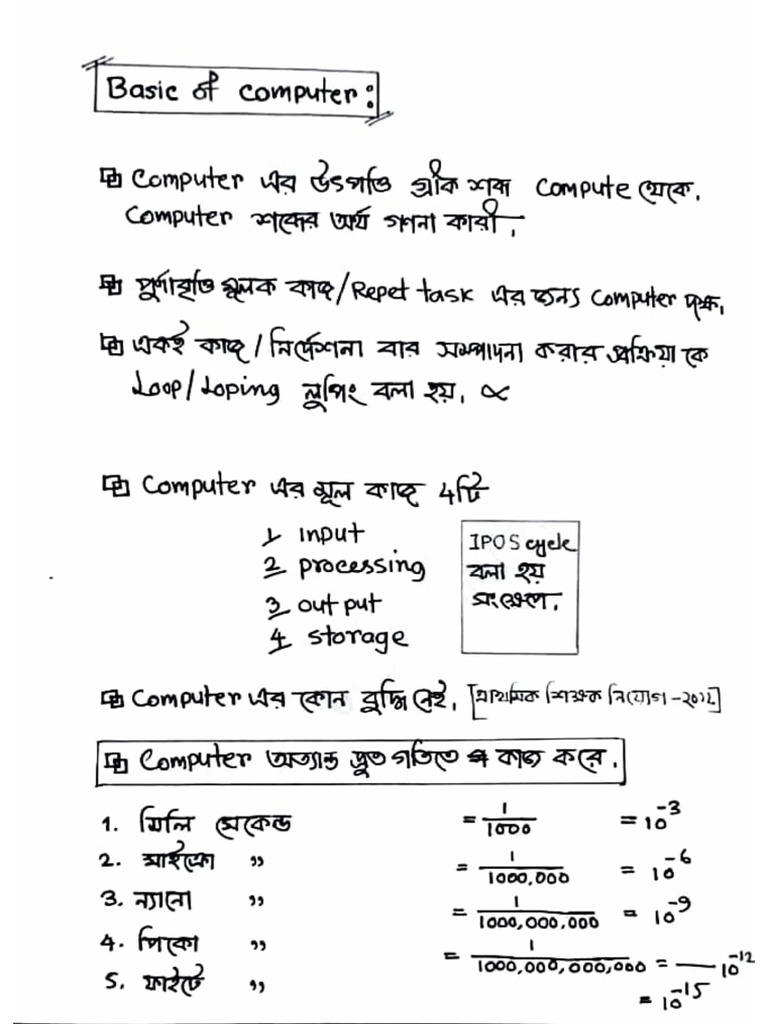 Basic of computer:
Computer এর উৎপত্তি গ্রীক শব্দ Compute থেকে.
Computer শব্দের অর্থ গণনা কারী.
পুর্ণাবৃত্তি মূলক কাজ/Repet task এর জন্য computer দক্ষ.
একই কাজ/নির্দেশনা বার সম্পাদনা করার প্রক্রিয়া কে
Loop/Loping লুপিং বলা হয়. ∝
Computer এর মূল কাজ 4টি
1 input
2 processing
3 output
4 storage
IPOS cycle
বলা হয়
সংক্ষেপে.
Computer এর কোন বুদ্ধি নেই. [প্রাথমিক শিক্ষক নিয়োগ-২০১২]
Computer অত্যান্ত দ্রুত গতিতে কাজ করে.
1. মিলি সেকেন্ড = 1/1000 = 10^-3
2. মাইক্রো " = 1/1000,000 = 10^-6
3. ন্যানো " = 1/1000,000,000 = 10^-9
4. পিকো " = 1/1000,000,000,000 = — 10^-12
5. ফাইটে " = 10^-15